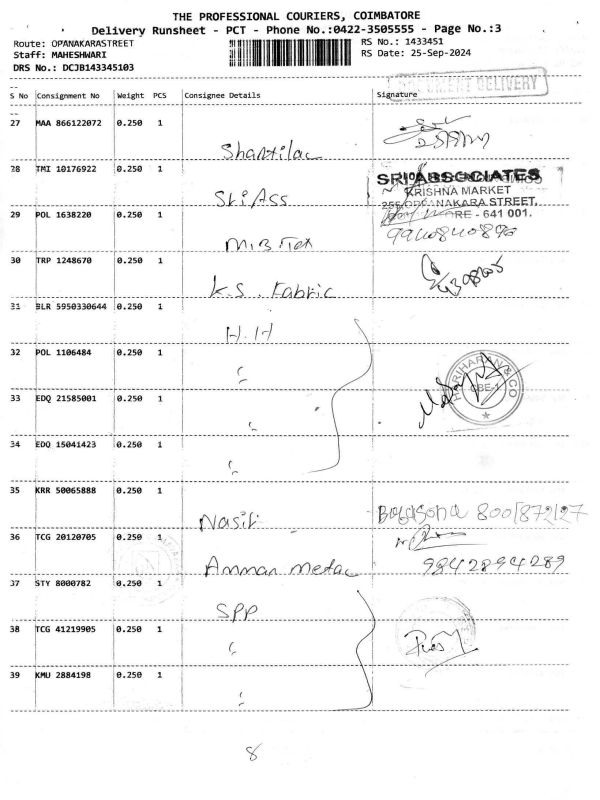 THE PROFESSIONAL COURIERS, COIMBATORE
Delivery Runsheet - PCT - Phone No.:0422-3505555 - Page No.:3
Route: OPANAKARASTREET RS No.: 1433451
Staff: MAHESHWARI RS Date: 25-Sep-2024
DRS No.: DCJB143345103
DOCUMENT DELIVERY
S No Consignment No Weight PCS Consignee Details Signature
27 MAA 866122072 0.250 1
Shantilac
28 TMI 10176922 0.250 1
SRI ASSOCIATES
KRISHNA MARKET
Sri Ass
255, OPPANAKARA STREET,
29 POL 1638220 0.250 1
- 641 001.
30 TRP 1248670 0.250 1
K.S. Fabric
31 BLR 5950330644 0.250 1
H.H
32 POL 1106484 0.250 1
HARIHARAN & CO
CBE-1
33 EDQ 21585001 0.250 1
34 EDQ 15041423 0.250 1
35 KRR 50065888 0.250 1
36 TCG 20120705 0.250 1
Amman metac 9842894289
37 STY 8000782 0.250 1
SPP
38 TCG 41219905 0.250 1
39 KMU 2884198 0.250 1
8